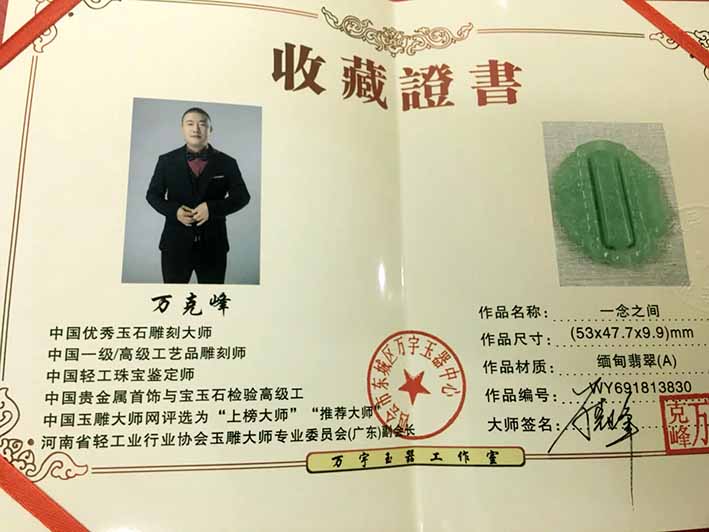 收藏證書
万克峰
中国优秀玉石雕刻大师
中国一级/高级工艺品雕刻师
中国轻工珠宝鉴定师
中国贵金属首饰与宝玉石检验高级工
中国玉雕大师网评选为“上榜大师”“推荐大师”
河南省轻工业行业协会玉雕大师专业委员会(广东)副会长
作品名称: 一念之间
作品尺寸: (53x47.7x9.9)mm
作品材质: 缅甸翡翠(A)
作品编号: WY691813830
大师签名:
会市东城区万宇玉器中心
万克峰
万宇玉器工作室